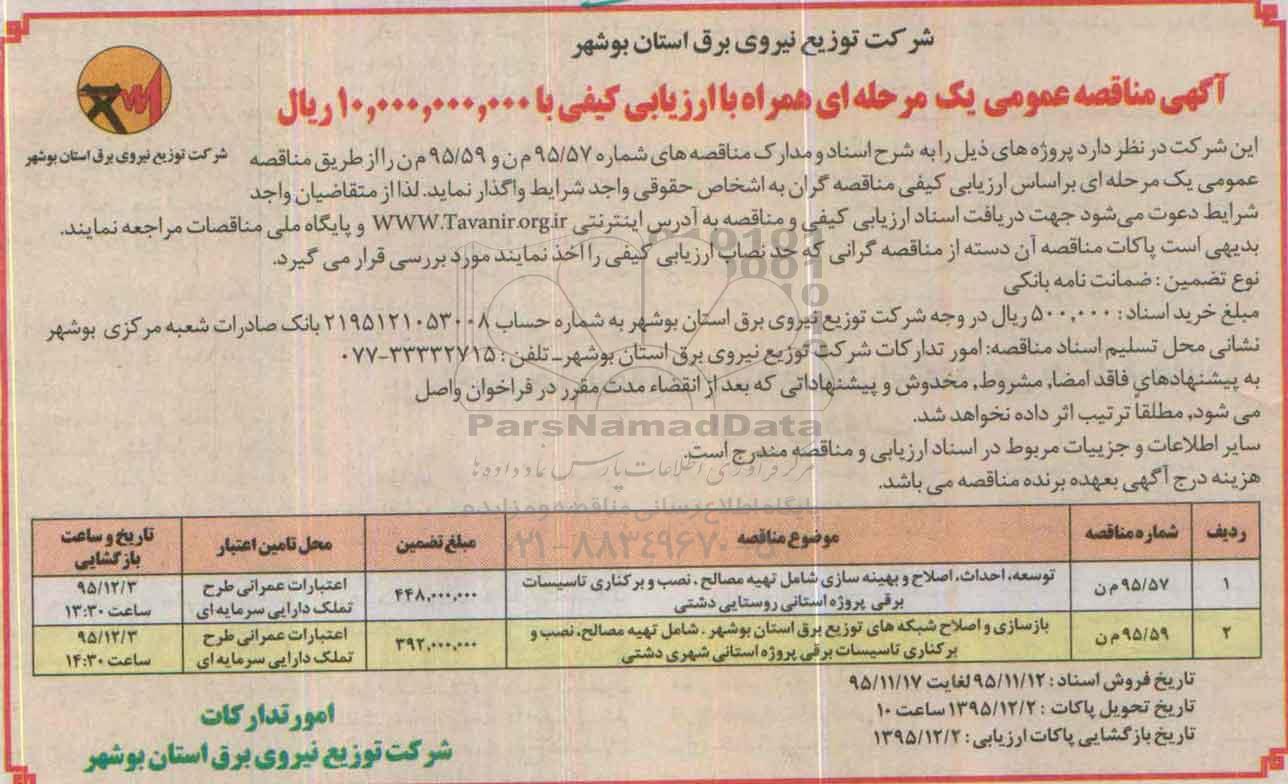 شرکت توزیع نیروی برق استان بوشهر
آگهی مناقصه عمومی یک مرحله ای همراه با ارزیابی کیفی با ۱۰,۰۰۰,۰۰۰,۰۰۰ ریال
شرکت توزیع نیروی برق استان بوشهر
این شرکت در نظر دارد پروژه های ذیل را به شرح اسناد و مدارک مناقصه های شماره ۹۵/۵۷ م ن و ۹۵/۵۹ م ن را از طریق مناقصه
عمومی یک مرحله ای براساس ارزیابی کیفی مناقصه گران به اشخاص حقوقی واجد شرایط واگذار نماید. لذا از متقاضیان واجد
شرایط دعوت می‌شود جهت دریافت اسناد ارزیابی کیفی و مناقصه به آدرس اینترنتی WWW.Tavanir.org.ir و پایگاه ملی مناقصات مراجعه نمایند.
بدیهی است پاکات مناقصه آن دسته از مناقصه گرانی که حد نصاب ارزیابی کیفی را اخذ نمایند مورد بررسی قرار می گیرد.
نوع تضمین : ضمانت نامه بانکی
مبلغ خرید اسناد : ۵۰۰,۰۰۰ ریال در وجه شرکت توزیع نیروی برق استان بوشهر به شماره حساب ۲۱۹۵۱۲۱۰۵۳۰۰۸ بانک صادرات شعبه مرکزی بوشهر
نشانی محل تسلیم اسناد مناقصه: امور تدارکات شرکت توزیع نیروی برق استان بوشهر_ تلفن : ۳۳۳۳۲۷۱۵-۰۷۷
به پیشنهادهای فاقد امضا, مشروط, مخدوش و پیشنهاداتی که بعد از انقضاء مدت مقرر در فراخوان واصل
می شود, مطلقاً ترتیب اثر داده نخواهد شد.
ParsNamadData
سایر اطلاعات و جزییات مربوط در اسناد ارزیابی و مناقصه مندرج است.
مرکز فرآوری اطلاعات پارس نماد داده ها
هزینه درج آگهی بعهده برنده مناقصه می باشد.
پایگاه اطلاع رسانی مناقصه و مزایده
ردیف شماره مناقصه موضوع مناقصه مبلغ تضمین محل تامین اعتبار تاریخ و ساعت بازگشایی
۰۲۱-۸۸۳۴۹۶۷۰-۵
۱ ۹۵/۵۷ م ن توسعه، احداث، اصلاح و بهینه سازی شامل تهیه مصالح ، نصب و برکناری تاسیسات ۴۴۸,۰۰۰,۰۰۰ اعتبارات عمرانی طرح ۹۵/۱۲/۳
برقی پروژه استانی روستایی دشتی تملک دارایی سرمایه ای ساعت ۱۳:۳۰
۲ ۹۵/۵۹ م ن بازسازی و اصلاح شبکه های توزیع برق استان بوشهر . شامل تهیه مصالح، نصب و ۳۹۲,۰۰۰,۰۰۰ اعتبارات عمرانی طرح ۹۵/۱۲/۳
برکناری تاسیسات برقی پروژه استانی شهری دشتی تملک دارایی سرمایه ای ساعت ۱۴:۳۰
تاریخ فروش اسناد : ۹۵/۱۱/۱۲ لغایت ۹۵/۱۱/۱۷
تاریخ تحویل پاکات : ۱۳۹۵/۱۲/۲ ساعت ۱۰
تاریخ بازگشایی پاکات ارزیابی : ۱۳۹۵/۱۲/۲
امور تدارکات
شرکت توزیع نیروی برق استان بوشهر